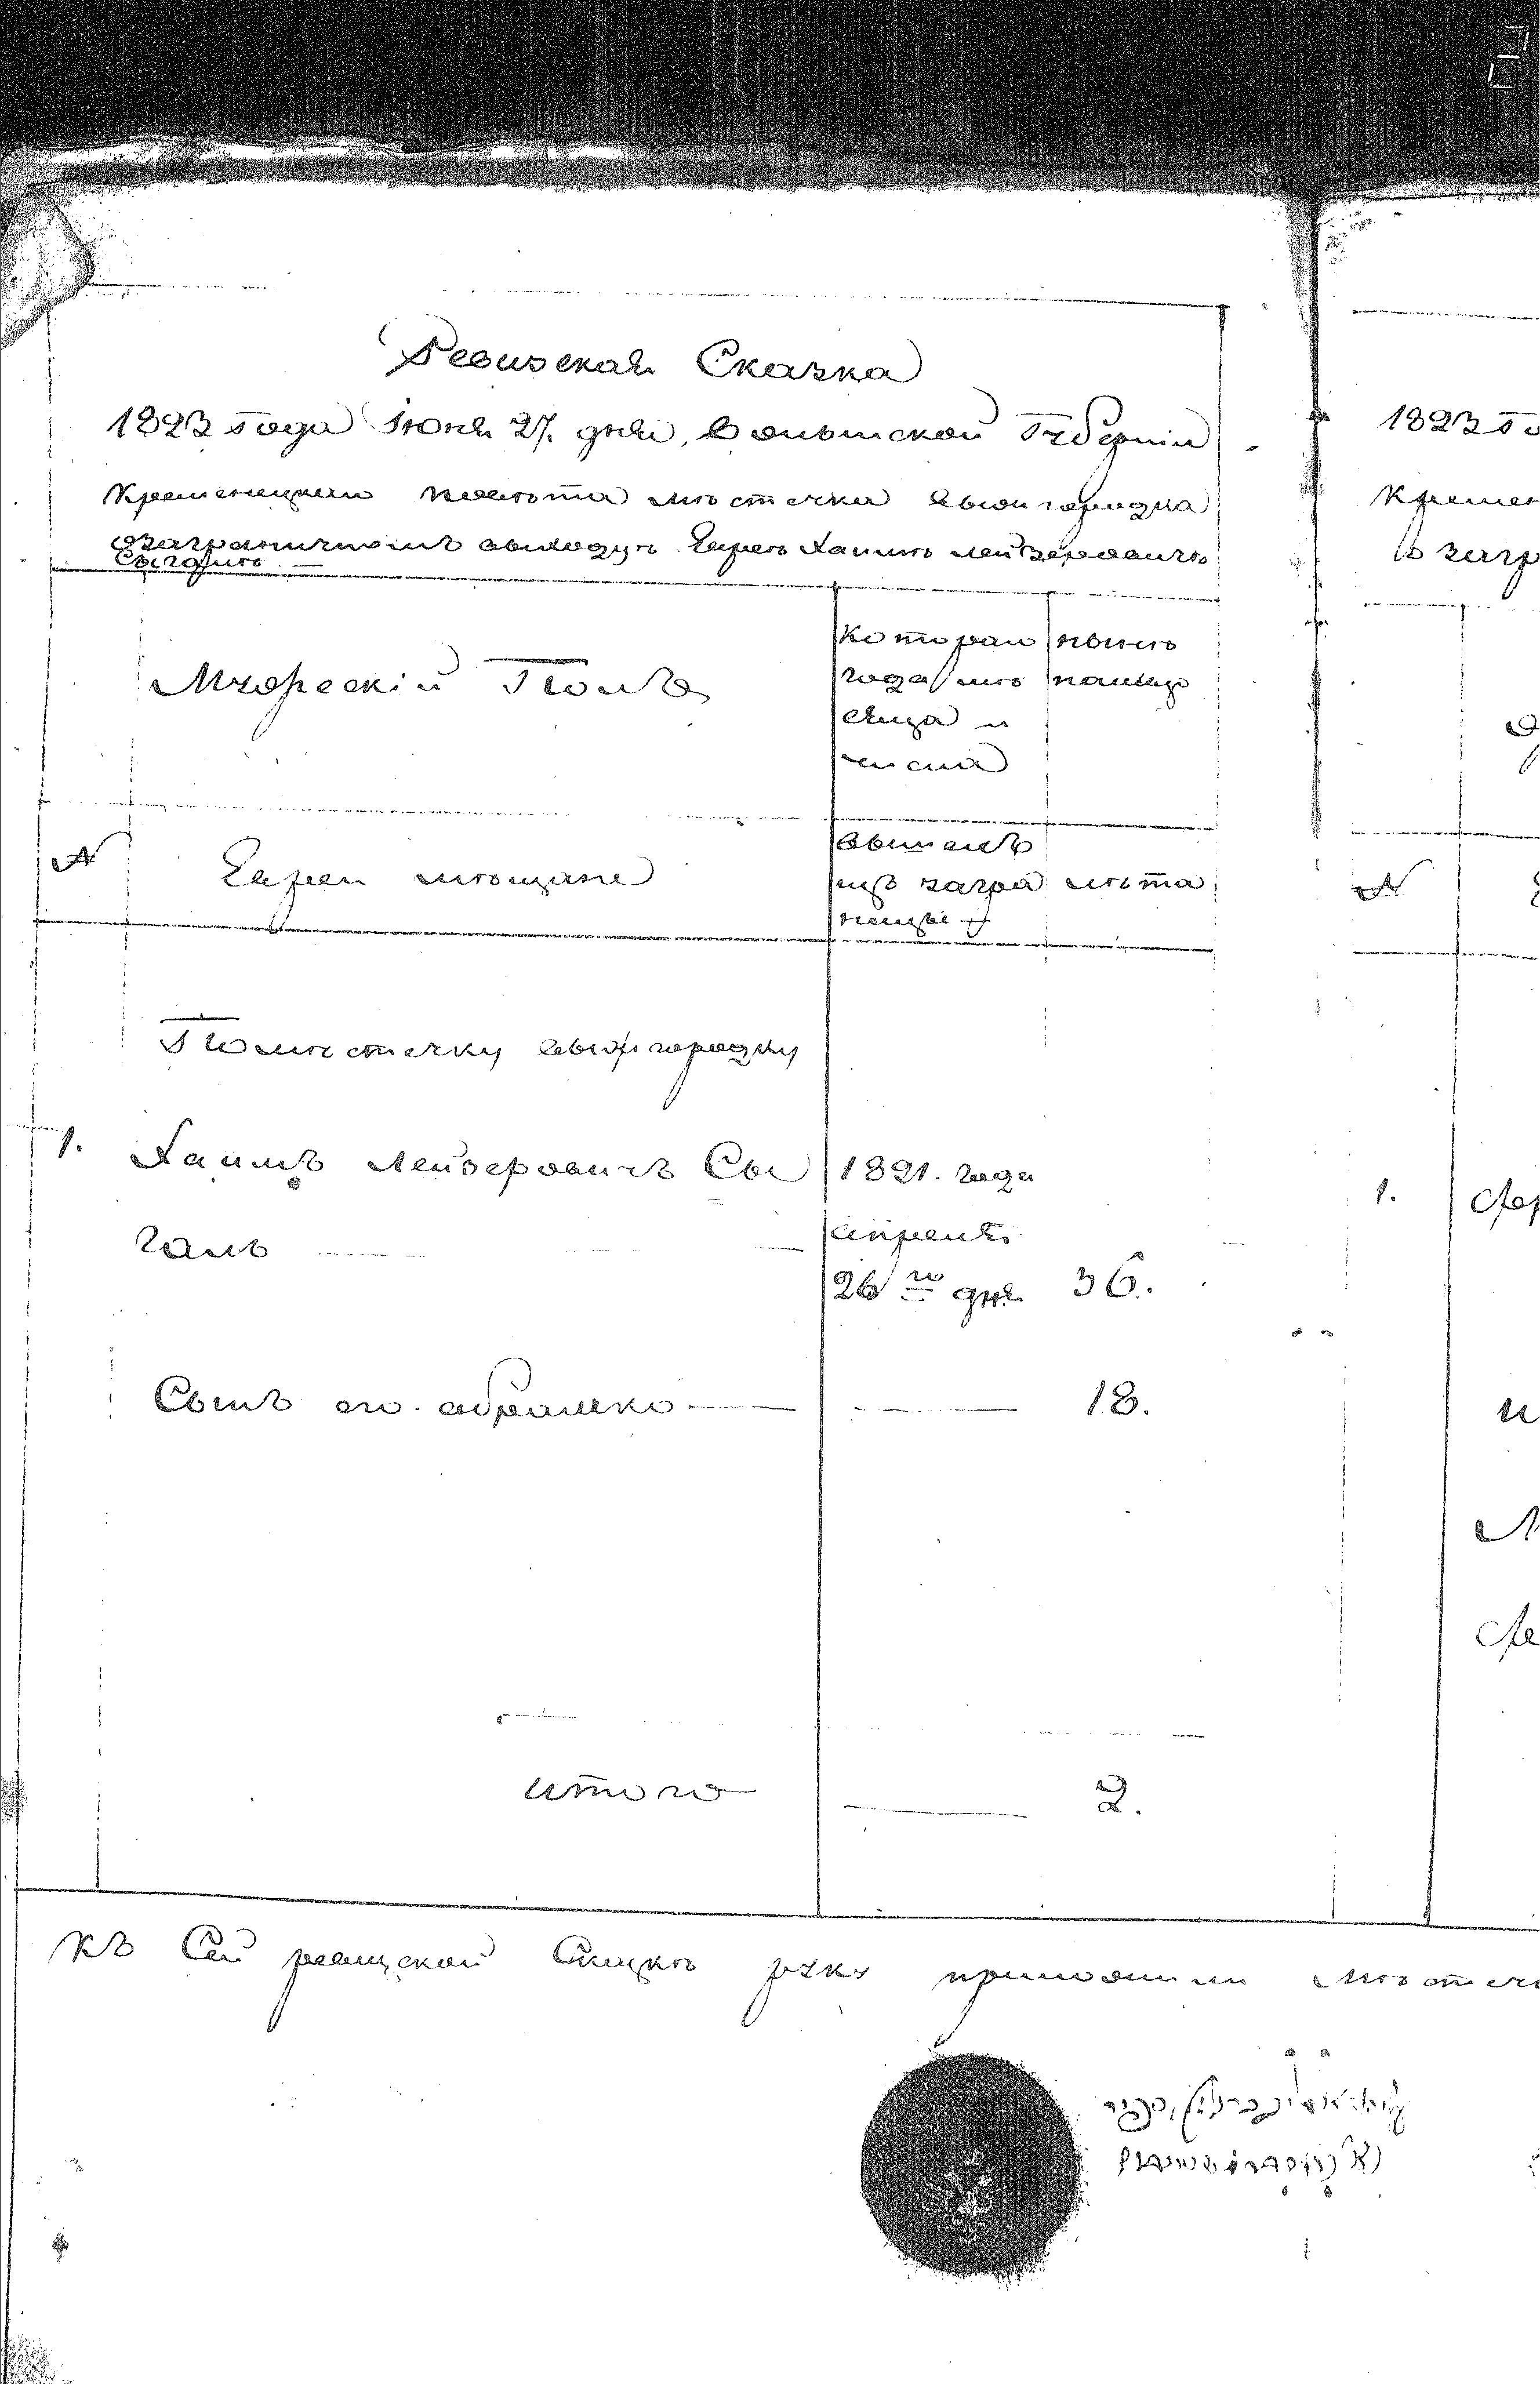 Ревизская Сказка
1823 года Июня 27. дня, Волынской Губернiи
Кременецкаго повѣта мѣстечка Вышгородка
озаграничномъ выходцѣ Евреѣ Хаимѣ Лейзеровичѣ
Сыгалѣ
Мужескiй Полъ
котораго
года мѣ
сяца и
числа
нынѣ
налицо
№
Евреи мѣщане
вышелъ
изъ загра
ницы
лѣта
По мѣстечку Вышгородку
1. Хаимъ Лейзеровичъ Сы 1821. года
галъ апреля
26го дня 36.
Сынъ его Абрамко 18.
итого 2.
Къ Сей ревизской Сказкѣ руку приложили мѣстеч
1823 го
Кремен
о загр
№
1.